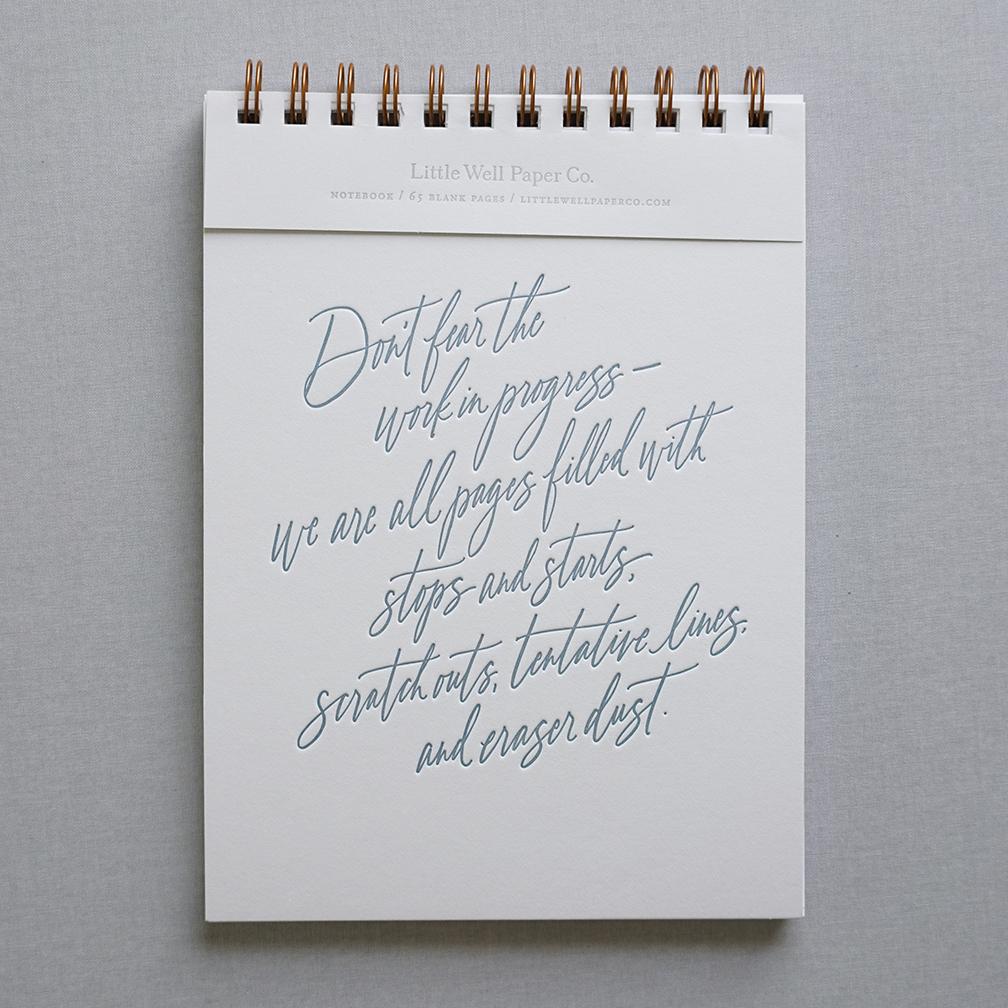 Little Well Paper Co.
NOTEBOOK / 65 BLANK PAGES / LITTLEWELLPAPERCO.COM
Don't fear the
work in progress —
we are all pages filled with
stops and starts,
scratch outs, tentative lines,
and eraser dust.